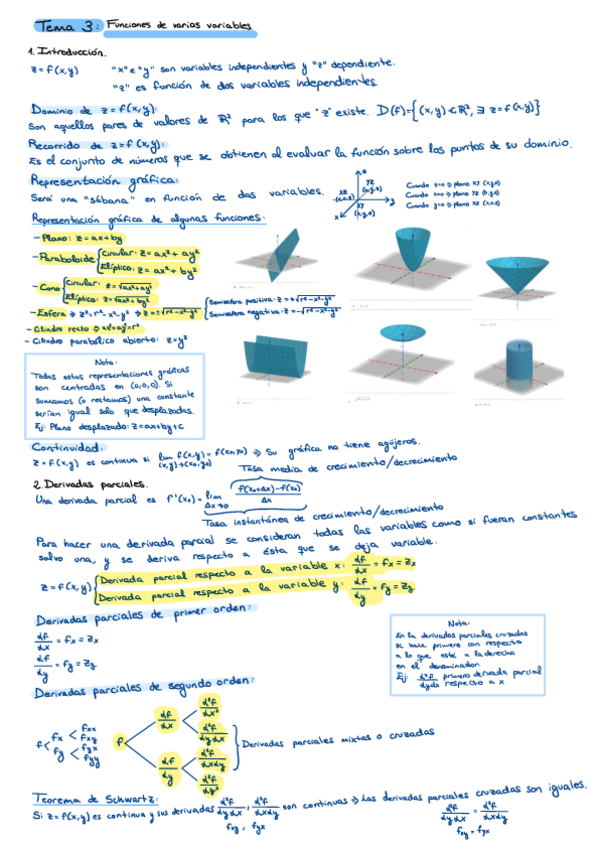 Tema 3: Funciones de varias variables
1. Introducción.
z = f(x,y) "x" e "y" son variables independientes y "z" dependiente.
"z" es función de dos variables independientes.
Dominio de z = f(x,y):
Son aquellos pares de valores de ℝ² para los que "z" existe. D(f)={(x,y) ∈ ℝ², ∃ z = f(x,y)}
Recorrido de z = f(x,y):
Es el conjunto de números que se obtienen al evaluar la función sobre los puntos de su dominio.
Representación gráfica:
Será una "sábana" en función de dos variables.
Cuando z=0 ⇒ plano XY (x,y,0)
Cuando x=0 ⇒ plano YZ (0,y,z)
Cuando y=0 ⇒ plano XZ (x,0,z)
Representación gráfica de algunas funciones:
- Plano: z = ax + by
- Paraboloide { Circular: z = ax² + ay²
Elíptico: z = ax² + by²
- Cono { Circular: z = √ax² + ay²
Elíptico: z = √ax² + by²
- Esfera ⇒ z² = r² - x² - y² ⇒ z = ±√r² - x² - y² { Semiesfera positiva: z = +√r² - x² - y²
Semiesfera negativa: z = -√r² - x² - y²
- Cilindro recto ⇒ ax² + ay² = r²
- Cilindro parabólico abierto: z = y²
Nota:
Todas estas representaciones gráficas
son centradas en (0,0,0). Si
sumamos (o restamos) una constante
serían igual solo que desplazadas.
Ej: Plano desplazado: z = ax + by + c
Continuidad:
z = f(x,y) es continua si lim f(x,y) = f(x₀,y₀) ⇒ Su gráfica no tiene agujeros.
(x,y)→(x₀,y₀)
Tasa media de crecimiento/decrecimiento
2. Derivadas parciales.
Una derivada parcial es f'(x₀) = lim f(x₀+Δx) - f(x₀)
Δx→0 Δx
Tasa instantánea de crecimiento/decrecimiento
Para hacer una derivada parcial se consideran todas las variables como si fueran constantes
salvo una, y se deriva respecto a ésta que se deja variable.
z = f(x,y) { Derivada parcial respecto a la variable x: df/dx = fx = zx
Derivada parcial respecto a la variable y: df/dy = fy = zy
Derivadas parciales de primer orden:
df/dx = fx = zx
df/dy = fy = zy
Nota:
En la derivadas parciales cruzadas
se hace primero con respecto
a lo que esté a la derecha
en el denominador.
Ej: d²f/dydx primero derivada parcial
respecto a x
Derivadas parciales de segundo orden:
f < fx < fxx
fxy
fy < fyx
fyy
f < df/dx < d²f/dx²
d²f/dydx
df/dy < d²f/dxdy
d²f/dy²
} Derivadas parciales mixtas o cruzadas
Teorema de Schwartz:
Si z = f(x,y) es continua y sus derivadas d²f/dydx, d²f/dxdy son continuas ⇒ Las derivadas parciales cruzadas son iguales.
fxy, fyx
d²f/dydx = d²f/dxdy
fxy = fyx